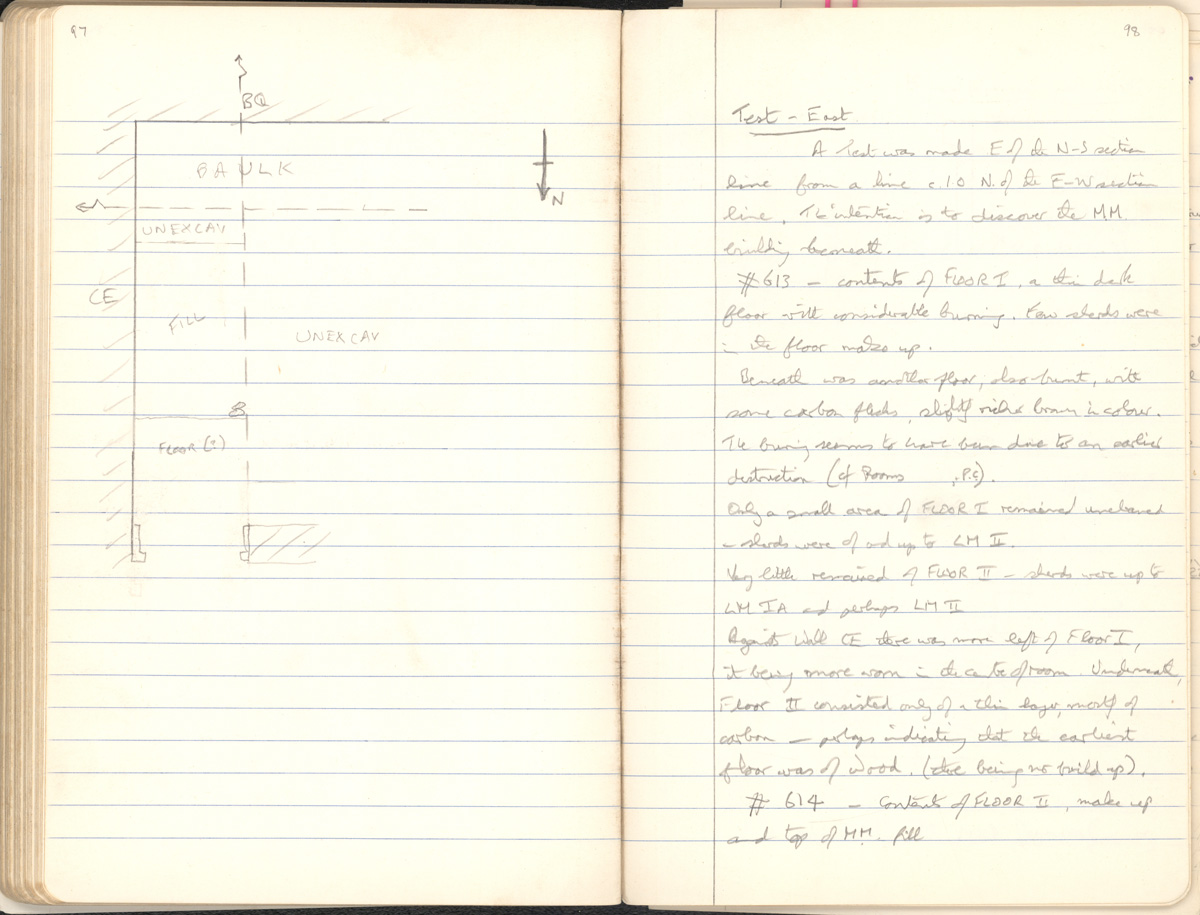 97
BQ
BAULK
N
UNEXCAV
CE
FILL
UNEXCAV
8
FLOOR (?)
98
Test - East
A Test was made E of the N-S section
line from a line c.1.0 N. of the E-W section
line. The intention is to discover the MM
building beneath.
# 613 - contents of FLOOR I, a thin dark
floor with considerable burning. Few sherds were
in the floor make up.
Beneath was another floor, also burnt, with
some carbon flecks, slightly richer brown in colour.
The burning seems to have been due to an earlier
destruction (cf Rooms , P.G).
Only a small area of FLOOR I remained uncleaned
- sherds were of and up to LM II.
Very little remained of FLOOR II - sherds were up to
LM IA and perhaps LM II
Against Wall CE there was more left of Floor I,
it being more worn in the centre of room. Underneath,
Floor II consisted only of a thin layer, mostly of
carbon - perhaps indicating that the earliest
floor was of wood. (there being no build up).
# 614 - Contents of FLOOR II, make up
and top of MM. fill